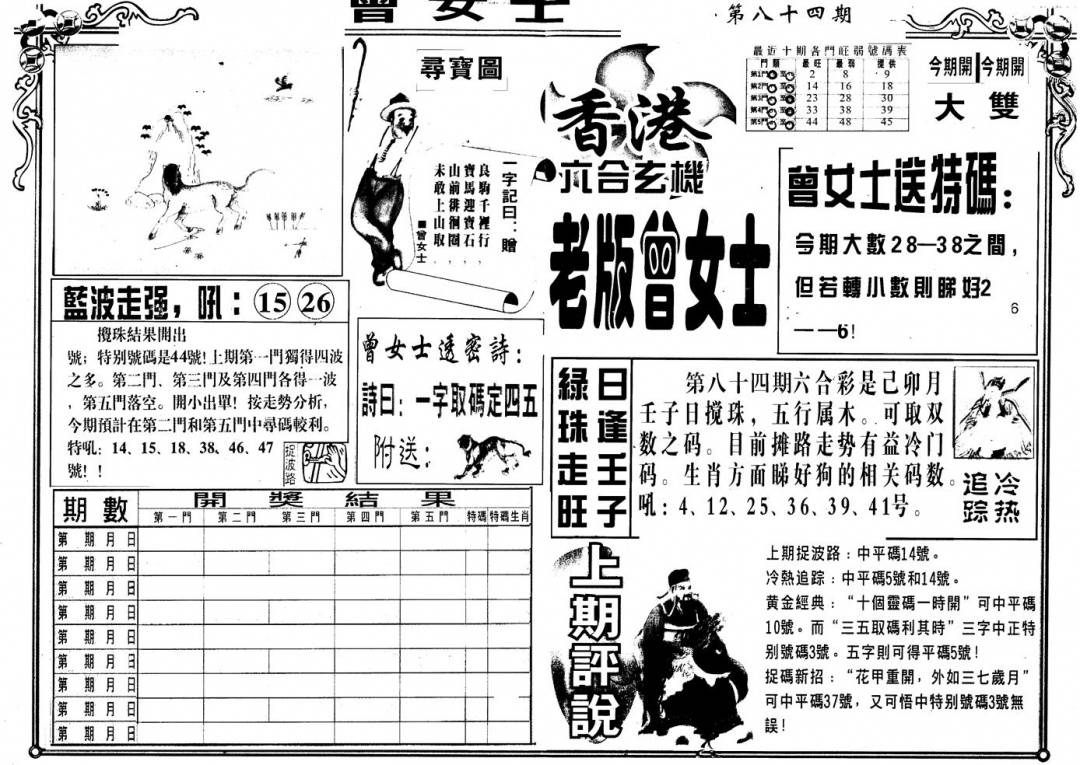 曾女士
第八十四期
尋寶圖
一字記曰：贈
良駒千裡行，
寶馬迎寶石，
山前徘徊圈，
未敢上山取。
■曾女士
香港
六合玄機
老版曾女士
最近十期各門旺弱號碼表
門類 最旺 最弱 提供
第1門 至 2 8 9
第2門 至 14 16 18
第3門 至 23 28 30
第4門 至 33 38 39
第5門 至 44 48 45
今期開 今期開
大 雙
曾女士送特碼：
今期大數28—38之間，
但若轉小數則睇好2
6
——6!
藍波走强，吼：15 26
攪珠結果開出
號；特别號碼是44號! 上期第一門獨得四波
之多。第二門、第三門及第四門各得一波
，第五門落空。開小出單! 按走勢分析，
今期預計在第二門和第五門中尋碼較利。
特吼：14、15、18、38、46、47
號! !
捉波路
曾女士透密詩：
詩曰：一字取碼定四五
附送：
日逢壬子
綠珠走旺
第八十四期六合彩是己卯月
壬子日搅珠，五行属木。可取双
数之码。目前摊路走势有益冷门
码。生肖方面睇好狗的相关码数。
吼：4、12、25、36、39、41号。
冷热
追踪
期數 開獎結果
第一門 第二門 第三門 第四門 第五門 特碼 特碼生肖
第 期 月 日
第 期 月 日
第 期 月 日
第 期 月 日
第 期 月 日
第 期 月 日
第 期 月 日
第 期 月 日
第 期 月 日
上期評說
上期捉波路：中平碼14號。
冷熱追踪：中平碼5號和14號。
黄金經典：“十個靈碼一時開”可中平碼
10號。而“三五取碼利其時”三字中正特
别號碼3號。五字則可得平碼5號!
捉碼新招：“花甲重開，外如三七歲月”
可中平碼37號，又可悟中特别號碼3號無
誤!